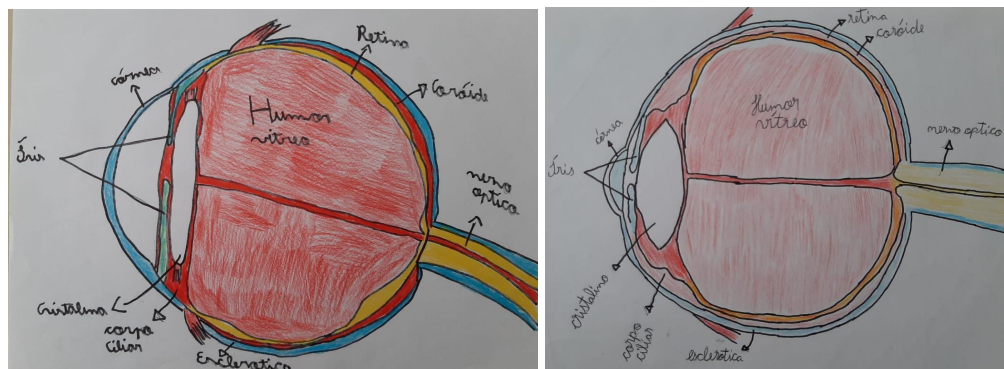 Retina
córnea
Coróide
Humor
vítreo
Íris
nervo
optico
Cristalino
corpo
ciliar
Esclerotica
retina
coróide
Humor
vítreo
nervo optico
córnea
Íris
cristalino
corpo
ciliar
esclerotica